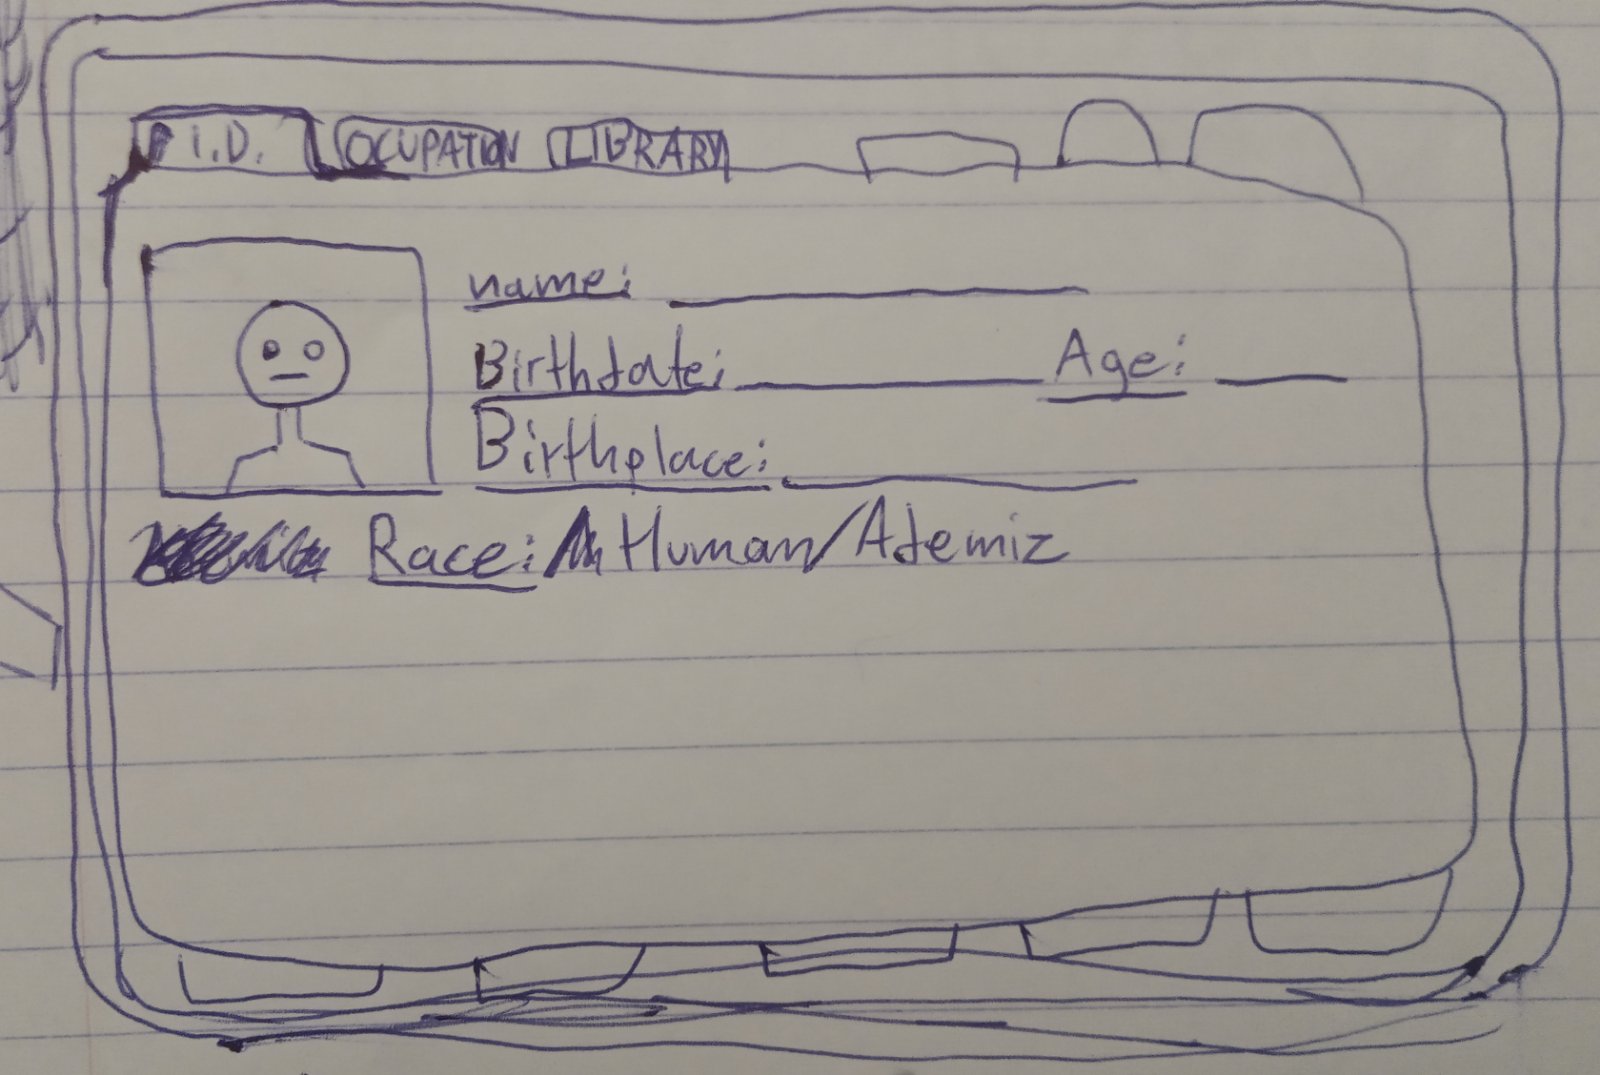 I.D. OCUPATION LIBRARY
name:
Birthdate: Age:
Birthplace:
Race: Human/Atemiz